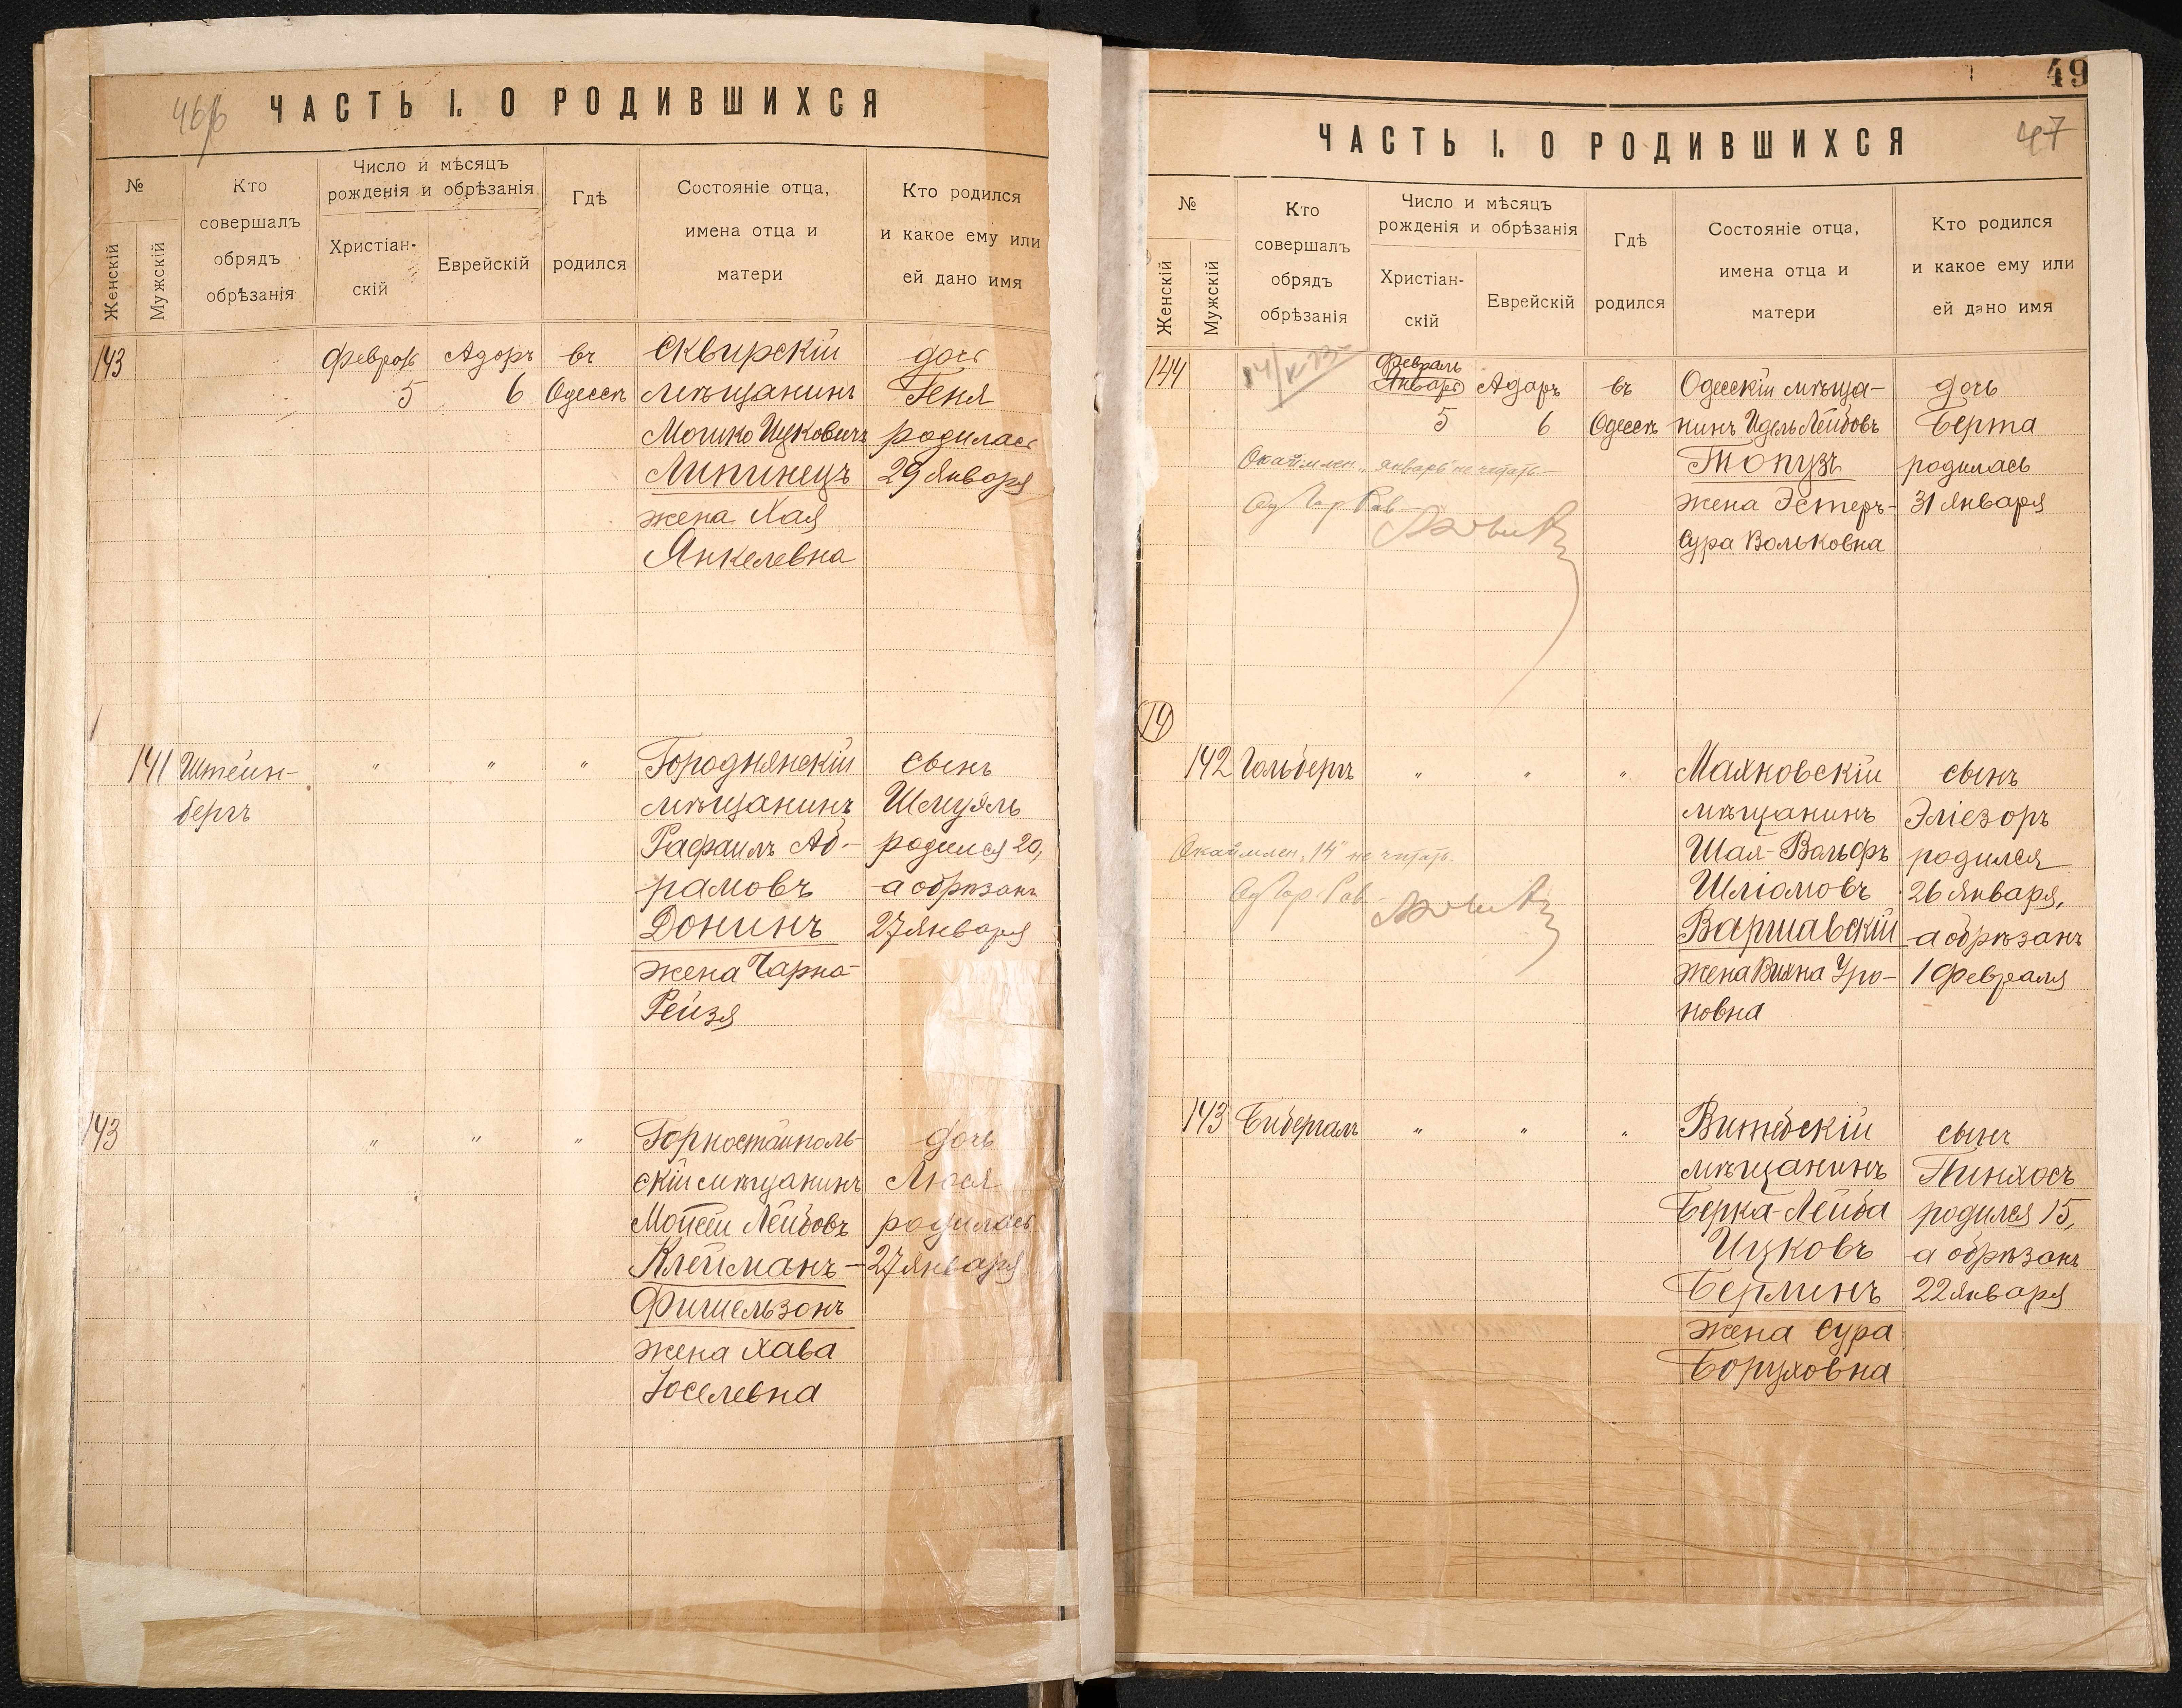 46/б
ЧАСТЬ I. О РОДИВШИХСЯ
№
Женскій
Мужскій
Кто
совершалъ
обрядъ
обрѣзанія
Число и мѣсяцъ
рожденія и обрѣзанія
Христіан-
скій
Еврейскій
Гдѣ
родился
Состояніе отца,
имена отца и
матери
Кто родился
и какое ему или
ей дано имя
143 Февраль Адаръ въ Сквирскій дочь
5 6 Одессѣ мѣщанинъ Геня
Мошко Ицковичъ родилась
Липинецъ 29 Января
жена Хая
Янкелевна
141 Штейн- " " " Городнянскій сынъ
бергъ мѣщанинъ Шмуэль
Рафаилъ Аб- родился 20,
рамовъ а обрѣзанъ
Донинъ 27 Января
жена Чарна-
Рейзя
143 " " " Горностайполь- дочь
скій мѣщанинъ Люся
Мойсей Лейбовъ родилась
Клейманъ- 27 Января
Фишельзонъ
жена Хава
Іоселевна
49
47
ЧАСТЬ I. О РОДИВШИХСЯ
№
Женскій
Мужскій
Кто
совершалъ
обрядъ
обрѣзанія
Число и мѣсяцъ
рожденія и обрѣзанія
Христіан-
скій
Еврейскій
Гдѣ
родился
Состояніе отца,
имена отца и
матери
Кто родился
и какое ему или
ей дано имя
Февраль
144 Январь Адаръ въ Одесскій мѣща- дочь
5 6 Одессѣ нинъ Идель Лейбовъ Берта
Окаймлен. "январь" не читать. Топузъ родилась
Од Гор Рав жена Эстеръ- 31 Января
Сура Вольковна
14
142 Гольбергъ " " " Маяковскій сынъ
мѣщанинъ Эліезоръ
Окаймлен. "14" не читать. Шая-Вольфъ родился
Од Гор. Рав Шліомовъ 26 Января,
Варшавскій а обрѣзанъ
жена Вихна Уро- 1 Февраля
новна
143 Бибергалъ " " " Витебскій сынъ
мѣщанинъ Пинхосъ
Берка-Лейба родился 15,
Ицковъ а обрѣзанъ
Берлинъ 22 Января
жена Сура
Боруховна